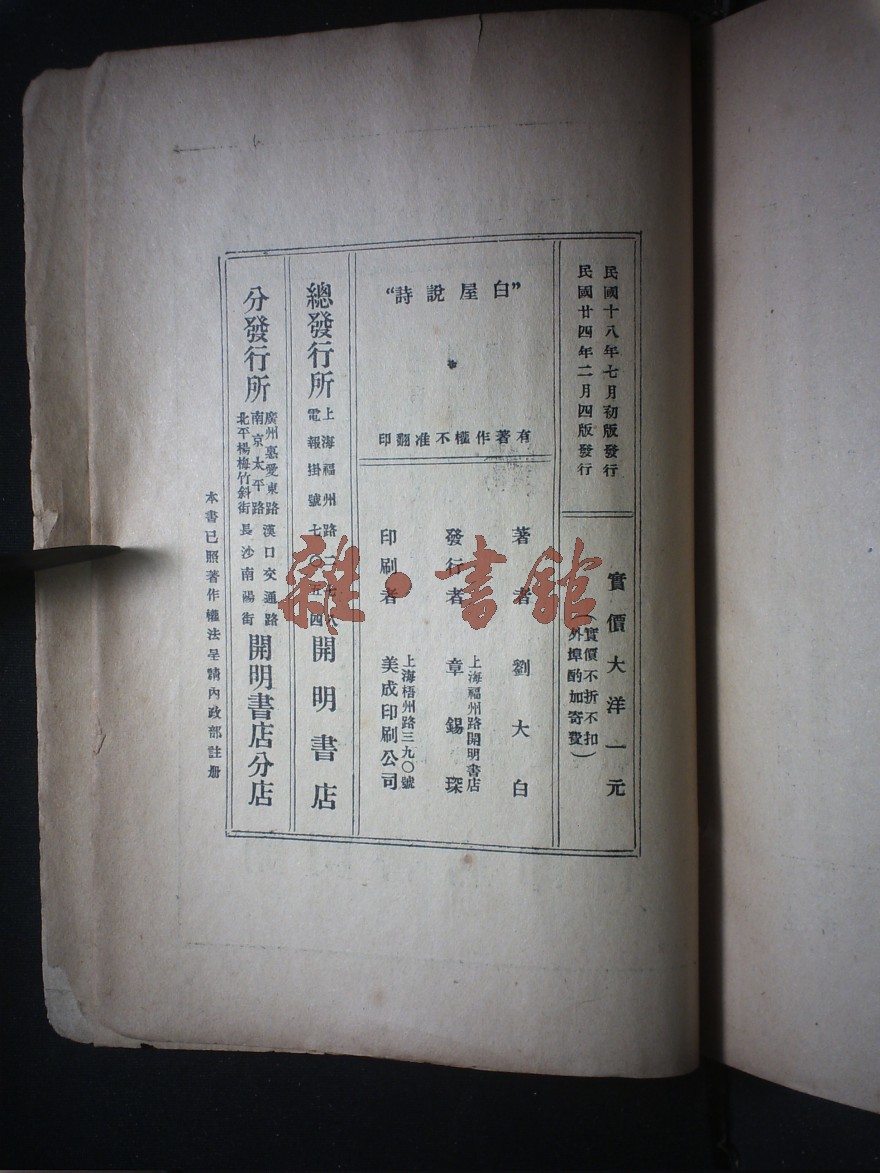 民國十八年七月初版發行
民國廿四年二月四版發行
實價大洋一元
(實價不折不扣
外埠酌加寄費)
"白屋說詩"
有著作權不准翻印
著者 劉大白
發行者 章錫琛
上海福州路開明書店
印刷者 美成印刷公司
上海梧州路三九〇號
總發行所 開明書店
上海福州路
電報掛號七〇五四
分發行所 開明書店分店
廣州惠愛東路 漢口交通路
南京太平路 長沙南陽街
北平楊梅竹斜街
本書已照著作權法呈請內政部註册
雜·書館